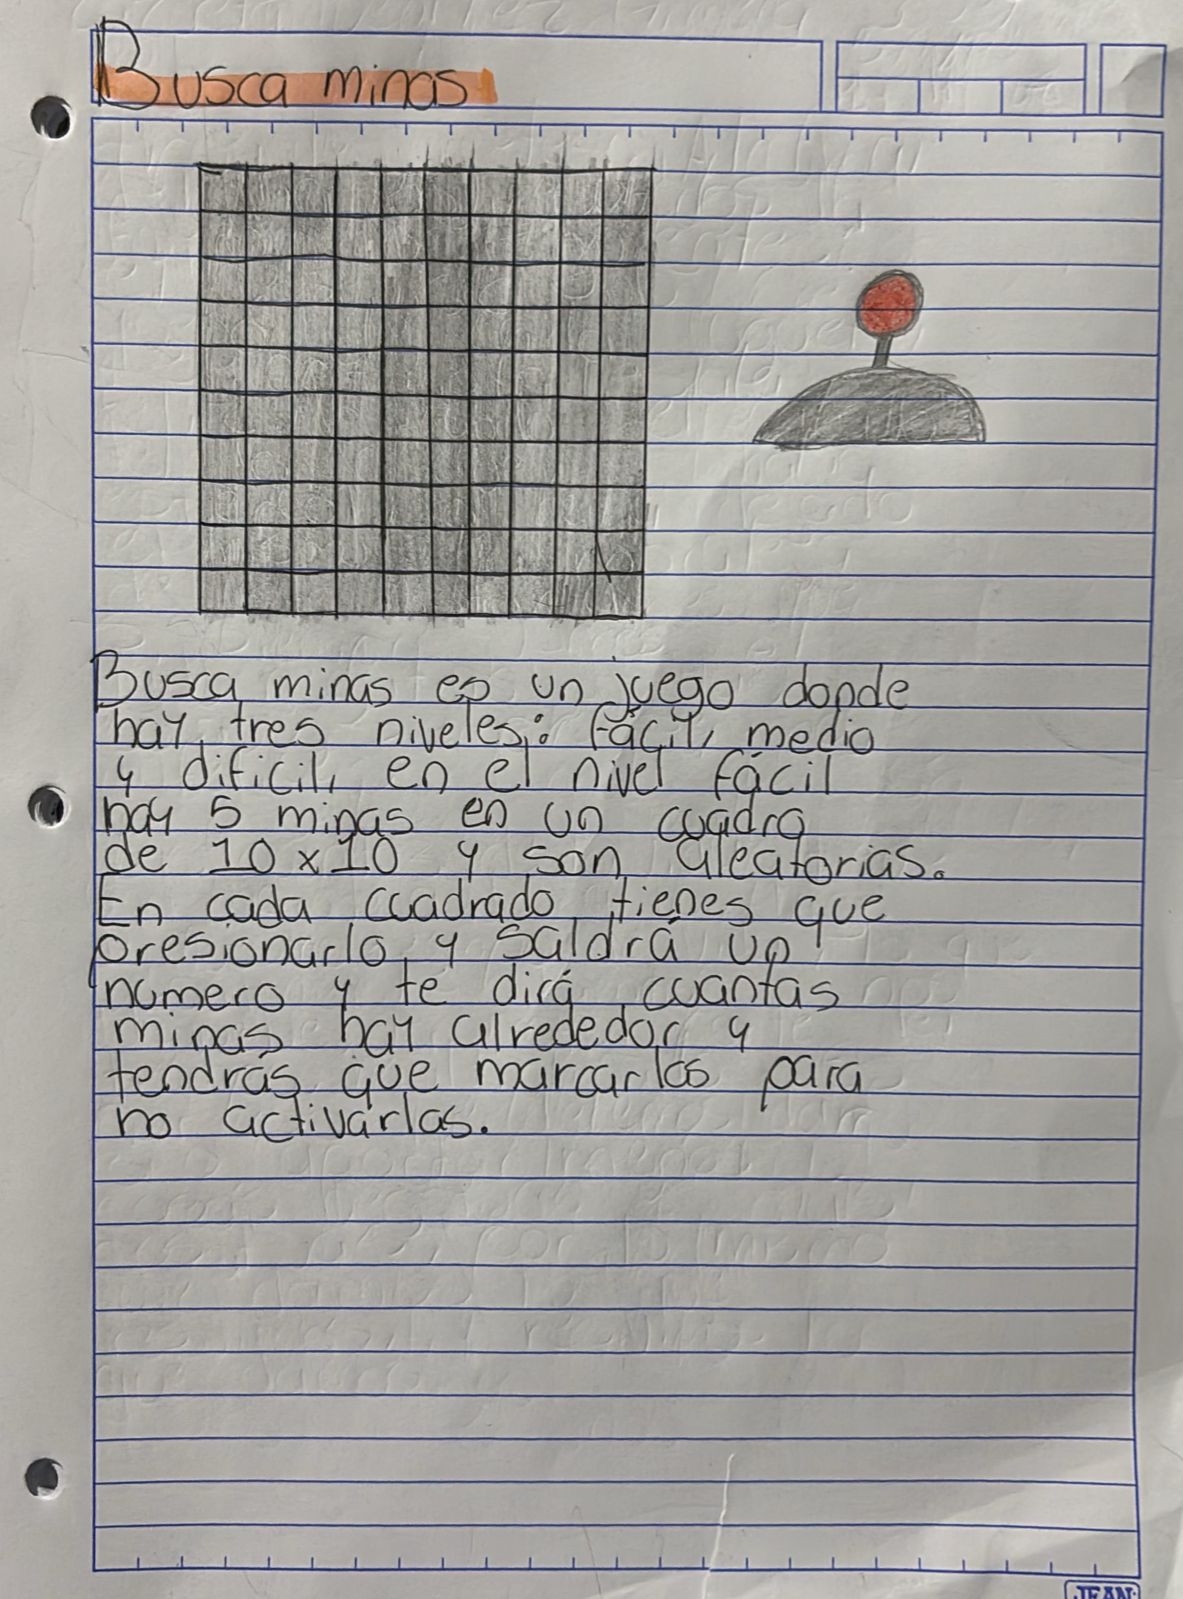 Busca minas
Busca minas es un juego donde
hay tres niveles: fácil, medio
y dificil, en el nivel fácil
hay 5 minas en un cuadro
de 10x10 y son aleatorias.
En cada cuadrado tienes que
presionarlo y saldrá un
numero y te dirá cuantas
minas hay alrededor y
tendrás que marcarlas para
no activarlas.
JEAN